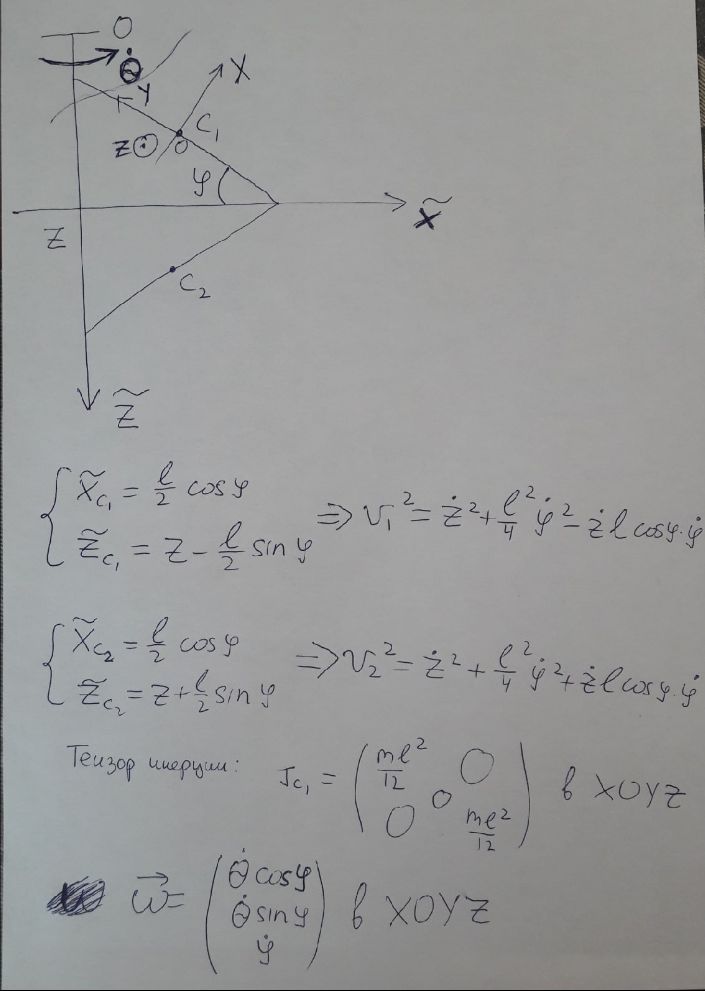 O
θ̇
Y
X
C₁
Z ⊙ O
φ
x̃
Z
C₂
z̃
{ x̃_{C₁} = l/2 cos φ
z̃_{C₁} = z − l/2 sin φ ⇒ v₁² = ż² + l²/4 φ̇² − ż l cos φ·φ̇
{ x̃_{C₂} = l/2 cos φ
z̃_{C₂} = z + l/2 sin φ ⇒ v₂² = ż² + l²/4 φ̇² + ż l cos φ·φ̇
Тензор инерции: J_{C₁} = ( ml²/12 0 0 0 ml²/12 ) в XOYZ
ω⃗ = ( θ̇ cos φ
θ̇ sin φ
φ̇ ) в XOYZ